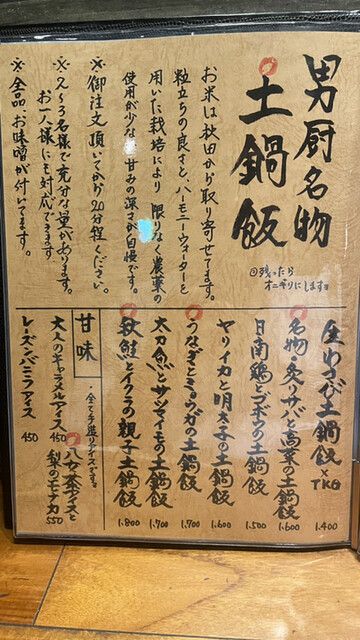 男厨名物
土鍋飯
◎残ったら
オニギリにします♡
お米は秋田から取り寄せてます。
粒立ちの良さと、ハーモニーウォーターを
用いた栽培により 限りなく農薬の
使用が少な 甘みの深さが自慢です。
※御注文頂いてから20分程ください。
※2〜3名様で充分な量があります。
お一人様にも対応できます。
※全品、お味噌が付いてます。
生わさび土鍋飯×TKG 1.400
名物 炙りサバと高菜の土鍋飯 1.600
日南鶏とゴボウの土鍋飯 1.500
ヤリイカと明太子の土鍋飯 1.600
うなぎとミョウガの土鍋飯 1.700
太刀魚とサツマイモの土鍋飯 1.700
秋鮭とイクラの親子土鍋飯 1.800
甘味
・全て手造りアイスです。
八女茶アイスと
梨のモナカ 550
大人のキャラメルアイス 450
レーズンバニラアイス 450